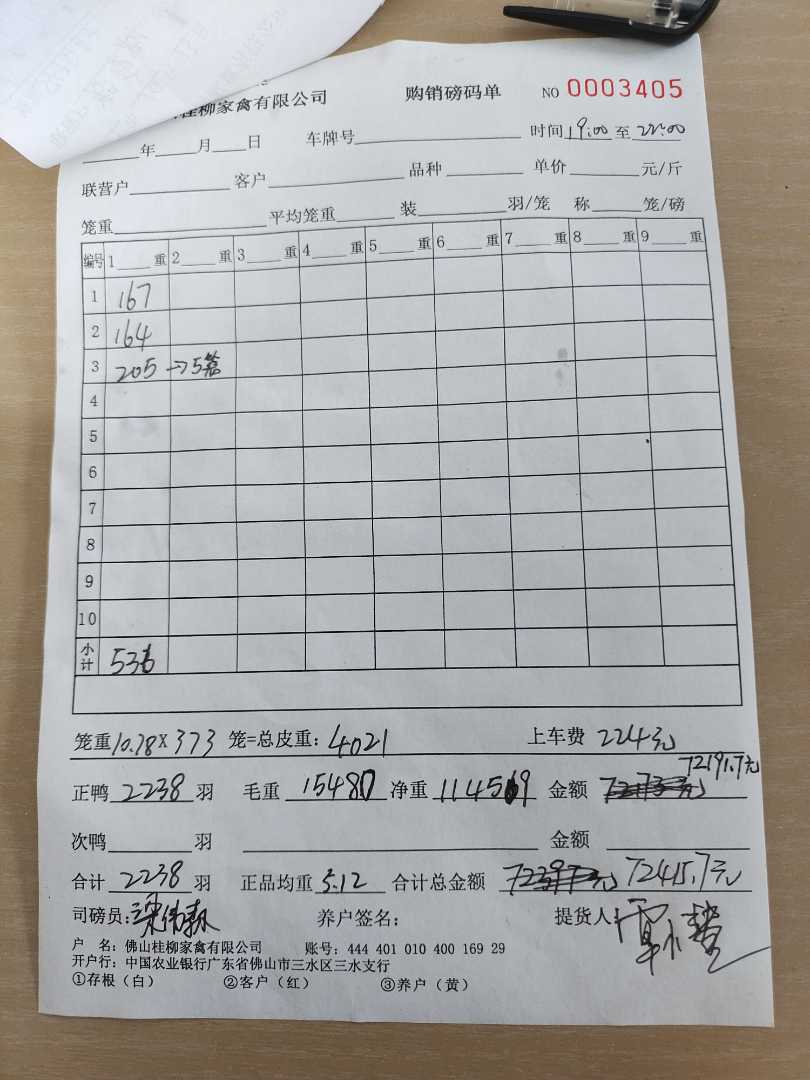 桂柳家禽有限公司 购销磅码单 NO 0003405
年 月 日 车牌号 时间 19:00 至 22:00
联营户 客户 品种 单价 元/斤
笼重 平均笼重 装 羽/笼 称 笼/磅
编号 1 重 2 重 3 重 4 重 5 重 6 重 7 重 8 重 9 重
1 167
2 164
3 205 →5笼
4
5
6
7
8
9
10
小计 536
笼重 10.78 X 373 笼=总皮重: 4021 上车费 224元
72191.7元
正鸭 2238 羽 毛重 15480 净重 11459 金额
次鸭 羽 金额
合计 2238 羽 正品均重 5.12 合计总金额 72415.7元
司磅员: 养户签名: 提货人:
户 名: 佛山桂柳家禽有限公司 账号: 444 401 010 400 169 29
开户行: 中国农业银行广东省佛山市三水区三水支行
①存根(白) ②客户(红) ③养户(黄)